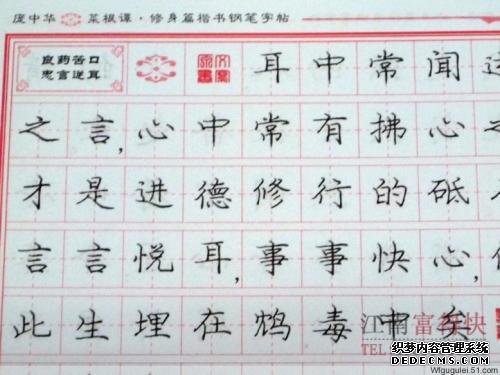 庞中华◇菜根谭·修身篇楷书钢笔字帖
良药苦口
忠言逆耳
耳中常闻逆
之言，心中常有拂心
才是进德修行的砥
言言悦耳，事事快心，
此生埋在鸩毒中矣
江南富
快
TEL
织梦内容管理系统
DEDECMS.COM
Wfgugulei.51.com